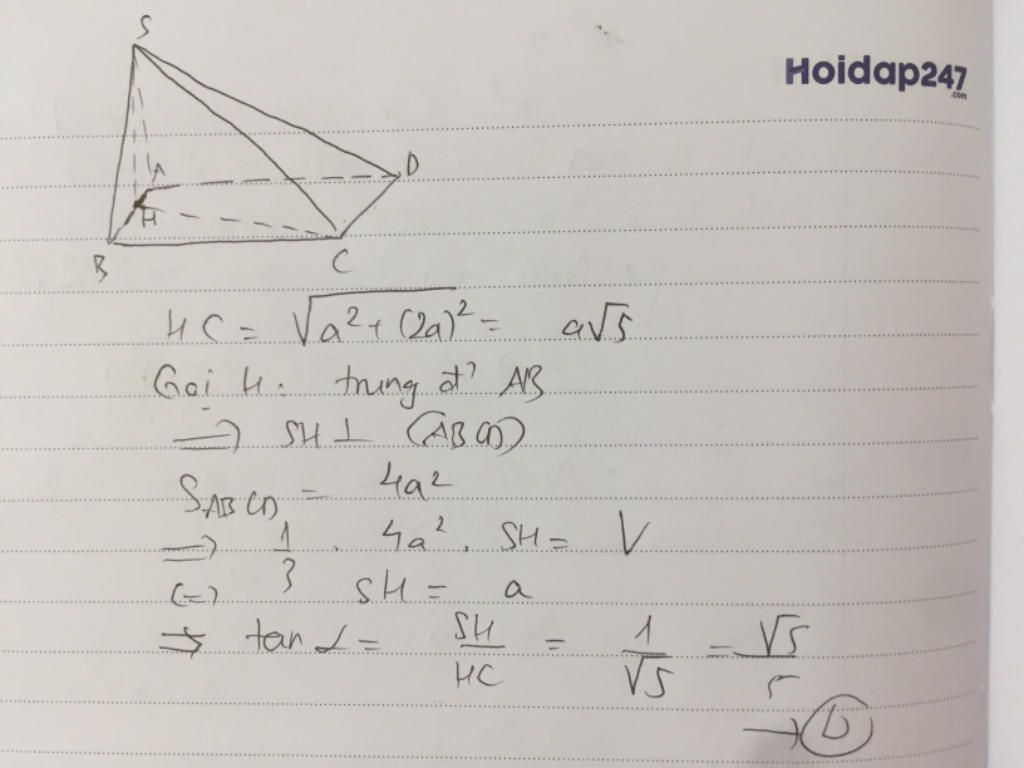 S
Hoidap247
.com
A
D
H
B
C
HC = √(a² + (2a)²) = a√5
Gọi H: trung đ² AB
=> SH ⊥ (ABCD)
S_ABCD = 4a²
=> 1/3 . 4a² . SH = V
(=) SH = a
=> tan α = SH/HC = 1/√5 = √5/5
→ D